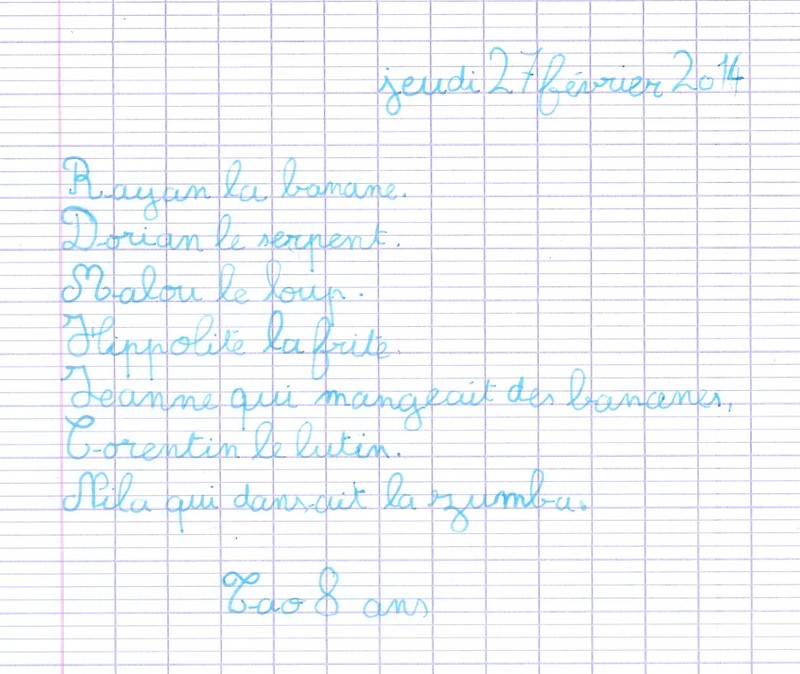 jeudi 27 février 2014
Rayan la banane.
Dorian le serpent.
Malou le loup.
Hippolite la frite.
Jeanne qui mangeait des bananes.
Corentin le lutin.
Nila qui dansait la zumba.
Tao 8 ans